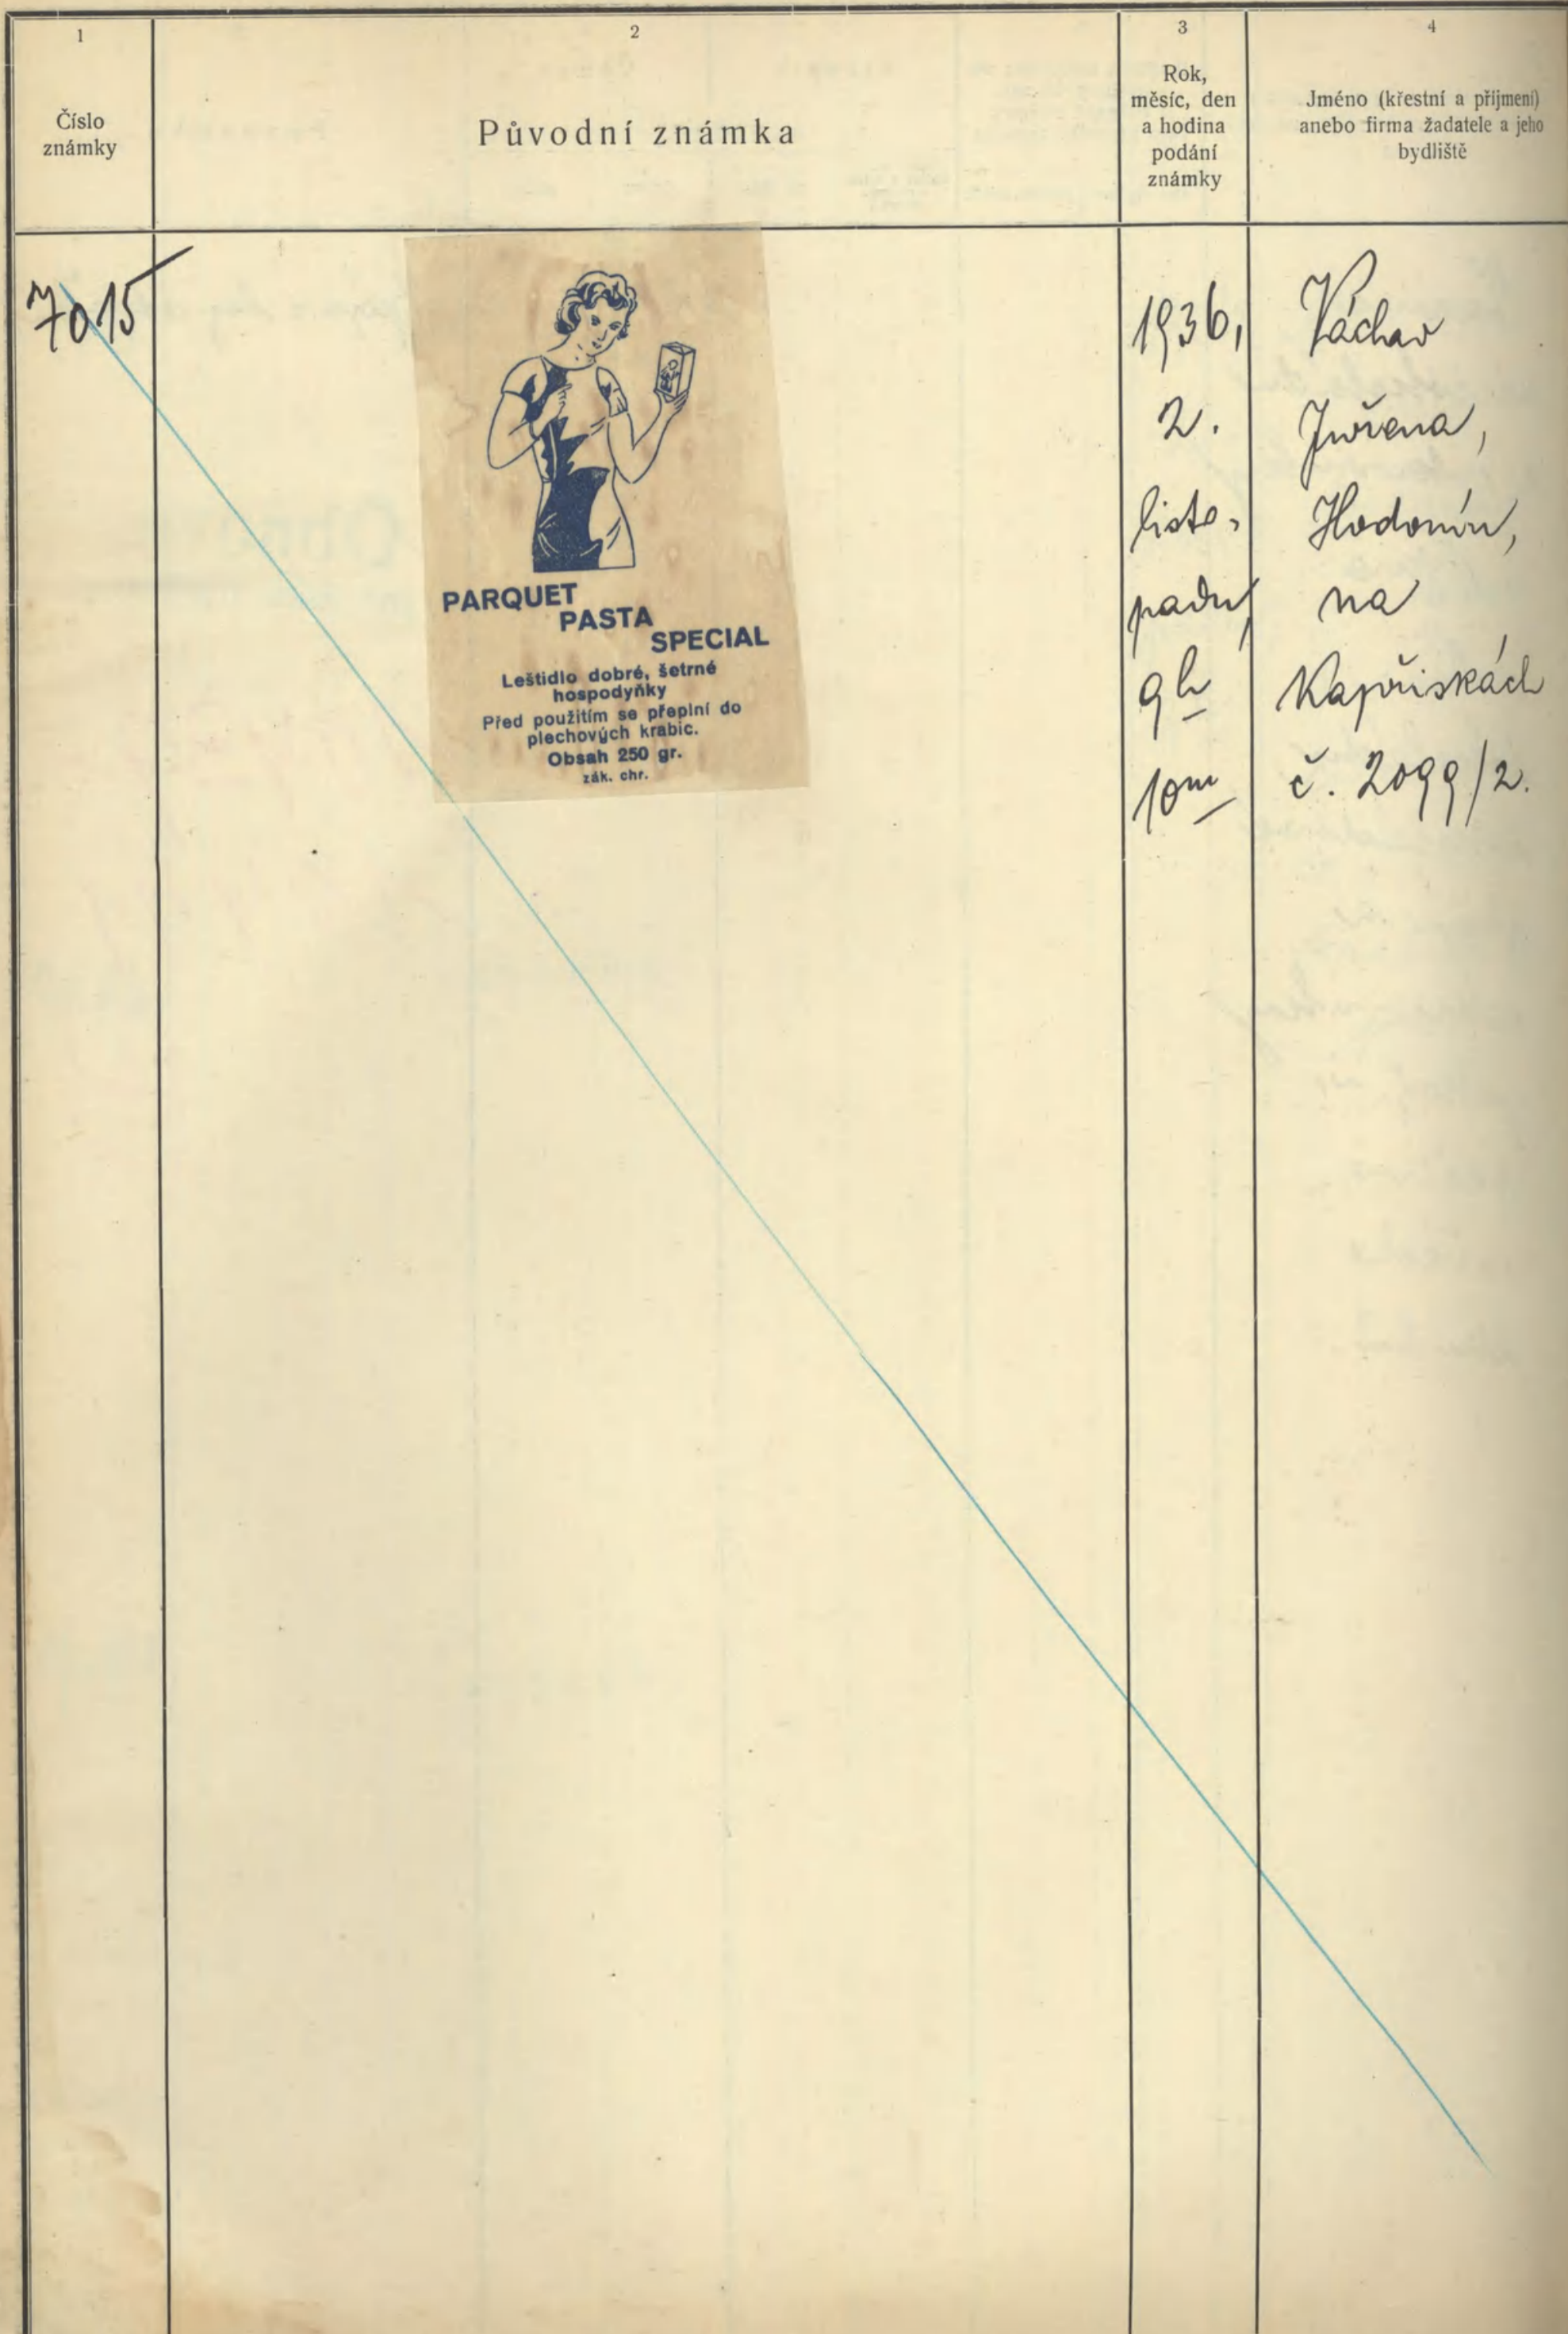 1
2
3
4
Číslo
známky
Původní známka
Rok,
měsíc, den
a hodina
podání
známky
Jméno (křestní a příjmení)
anebo firma žadatele a jeho
bydliště
7015
PARQUET
PASTA
SPECIAL
Leštidlo dobré, šetrné
hospodyňky
Před použitím se přeplní do
plechových krabic.
Obsah 250 gr.
zák. chr.
1936,
2.
listo-
padu,
9h
10m
Václav
Hodonín,
na
č. 2099/2.